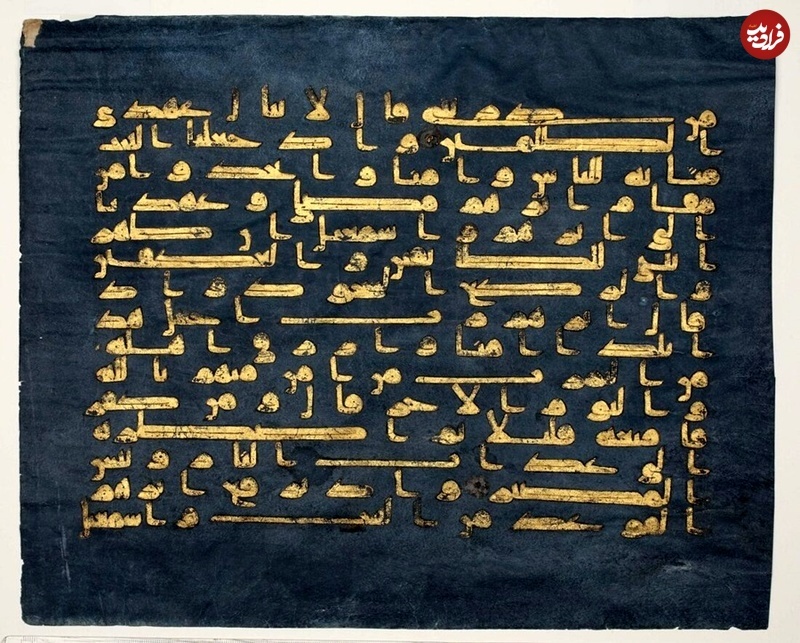 من ذريتى قال لا ينال عهدى
الظلمين واذ جعلنا البيت
مثابه للناس وامنا واتخذوا من
مقام ابرهيم مصلى وعهدنا
الى ابرهيم واسمعيل ان طهر
ا بيتى للطائفين والعكفين
والركع السجود واذ
قال ابرهيم رب اجعل هذ
ا بلدا امنا وارزق اهله
من الثمرت من امن منهم بالله
واليوم الاخر قال ومن كفر
فامتعه قليلا ثم اضطره
الى عذاب النار وبئس
المصير واذ يرفع ابرهيم
القوعد من البيت واسمعيل
فرادید